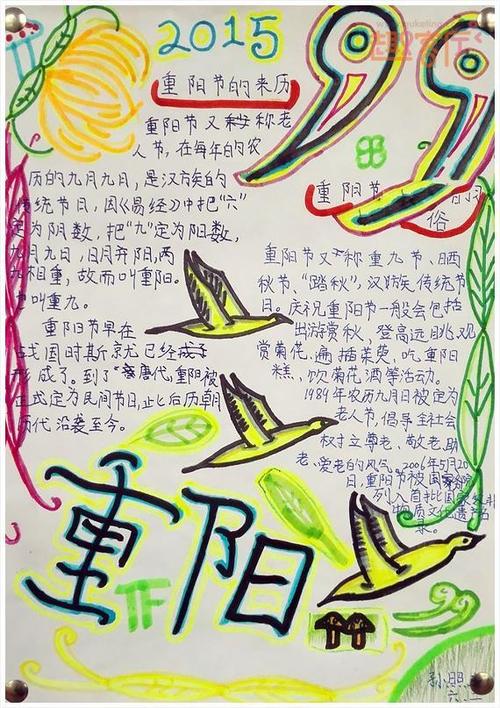 2015
重阳节的来历
重阳节又称老
人节，在每年的农
历的九月九日，是汉族的
传统节日，因《易经》中把“六”
定为阴数，把“九”定为阳数，
九月九日，日月并阳，两
九相重，故而叫重阳。
也叫重九。
重阳节早在
战国时
形成了。到了唐代，重阳被
正式定为民间节日，此后历朝
历代沿袭至今。
重阳节
俗
重阳节又称重九节、晒
秋节、“踏秋”，汉族传统节
日。庆祝重阳节一般会包括
出游赏秋、登高远眺、观
赏菊花、遍插茱萸、吃重阳
糕、饮菊花酒等活动。
1989年农历九月九日被定为
老人节，倡导全社会
树立尊老、敬老、助
老、爱老的风气。2006年5月20
日，重阳节被国
列入首批国家
物质文化遗产名
录。
重阳
TF
六